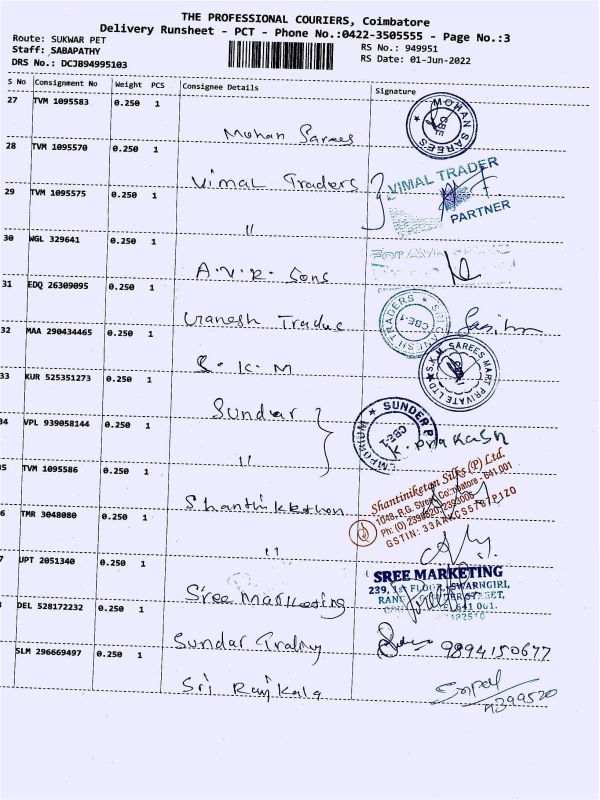 THE PROFESSIONAL COURIERS, Coimbatore
Delivery Runsheet - PCT - Phone No.:0422-3505555 - Page No.:3
Route: SUKWAR PET
RS No.: 949951
Staff: SABAPATHY
RS Date: 01-Jun-2022
DRS No.: DCJB94995103
S No Consignment No Weight PCS Consignee Details Signature
27 TVM 1095583 0.250 1
Mohan Sarees
MOHAN SAREES CBE
28 TVM 1095570 0.250 1
Vimal Traders
VIMAL TRADER
PARTNER
29 TVM 1095575 0.250 1
"
30 WGL 329641 0.250 1
A.V.R. Sons
31 EDQ 26309095 0.250 1
Ganesh
TRADERS CBE-1
32 MAA 290434465 0.250 1
S.K.M
S.K.M. SAREES MART PRIVATE LTD
33 KUR 525351273 0.250 1
Sundar
SUNDER
34 VPL 939058144 0.250 1
"
K. Prakash
35 TVM 1095586 0.250 1
Shantiniketan Silks (P) Ltd.
1048, R.G. Street, Coimbatore - 641 001
Ph: (0)
GSTIN:
6 TMR 3048080 0.250 1
"
7 UPT 2051340 0.250 1
Sree Marketing
SREE MARKETING
239, 1st FLOOR, SWARNGIRI,
641 001.
DEL 528172232 0.250 1
Sundar
9894150677
SLM 296669497 0.250 1
Sri